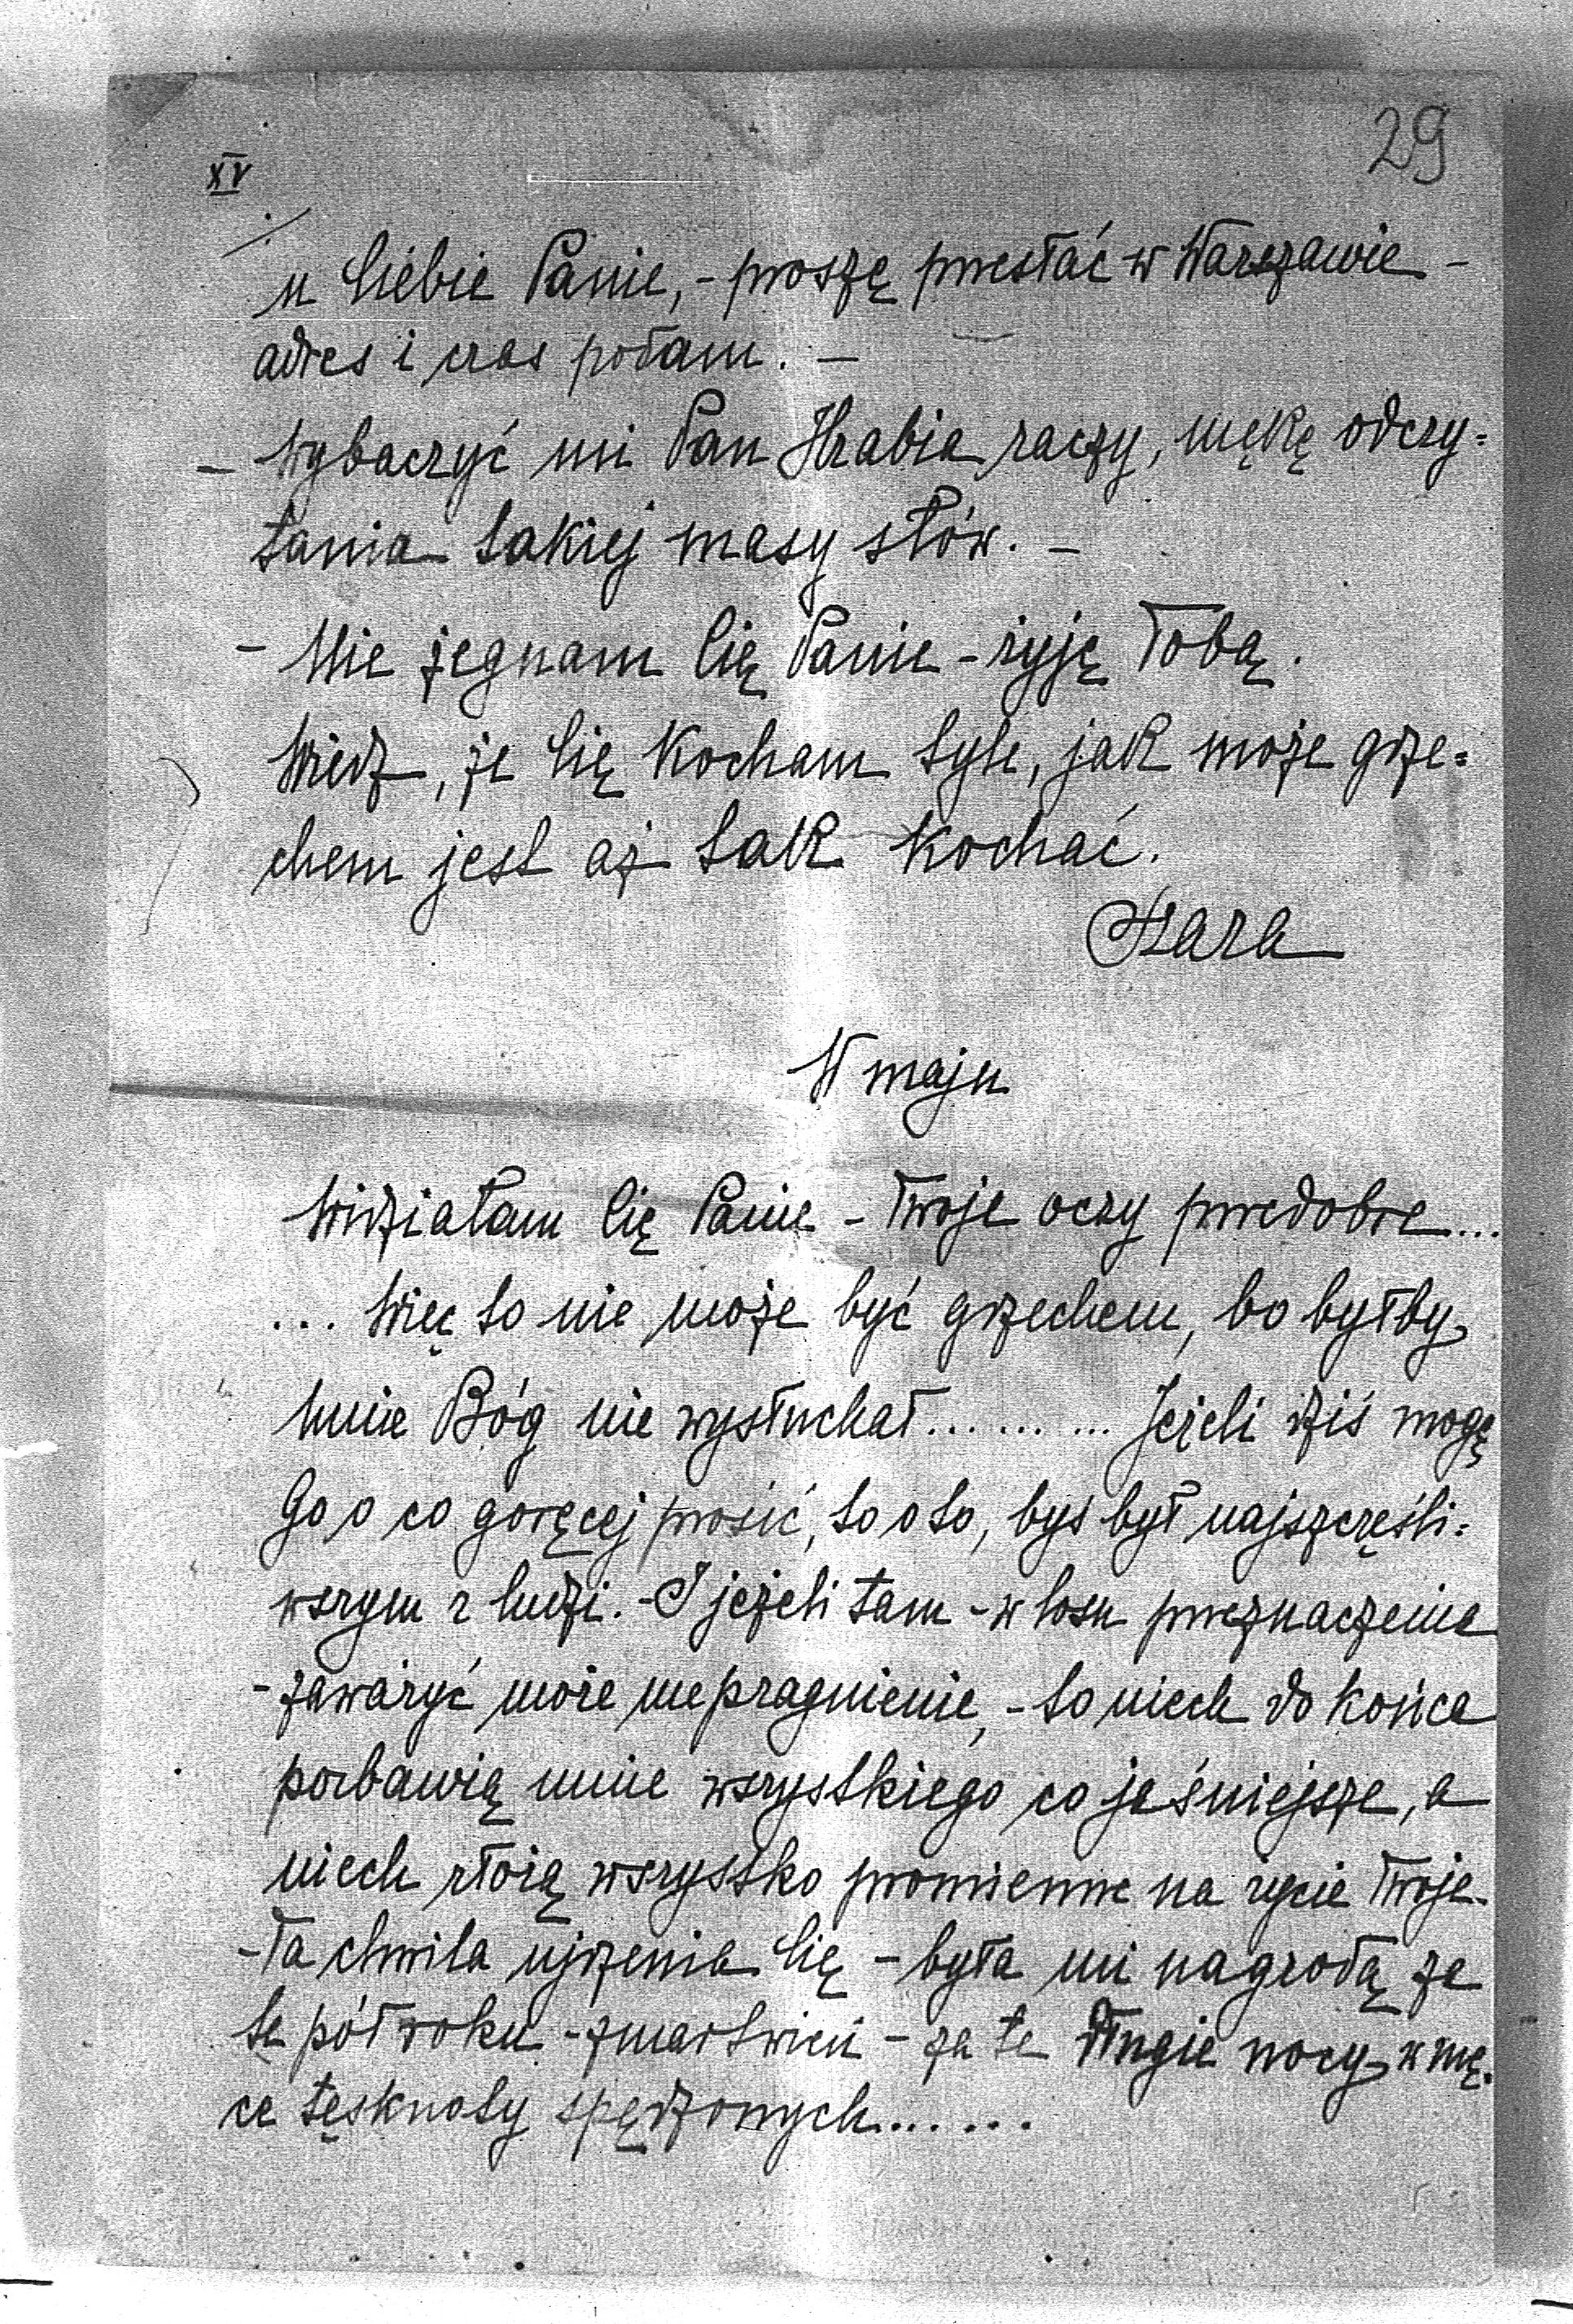 29
XV
u Ciebie Panie, - proszę przesłać w Warszawie -
adres i czas podam. -
- Wybaczyć mi Pan Hrabia raczy, mękę odczy=
tania takiej masy słów. -
- Nie żegnam Cię Panie - żyję Tobą.
Wiedz, że Cię Kocham tyle, jak może grze=
chem jest aż tak Kochać.
Szara
W maju
Widziałam Cię Panie - Twoje oczy przedobre...
... Więc to nie może być grzechem, bo byłby
mnie Bóg nie wysłuchał......... Jeżeli dziś mogę
Go o co goręcej prosić, to o to, byś był najszczęśli=
wszym z ludzi. - I jeżeli tam - w losu przeznaczenia
- zaważyć może me pragnienie, - to niech do końca
pozbawią mnie wszystkiego co jaśniejsze, a
niech złożą wszystko promienne na życie Twoje.
- Ta chwila ujrzenia Cię - była mi nagrodą za
te pół roku - zmartwień - za te długie nocy w mę=
ce tęsknoty spędzonych.......